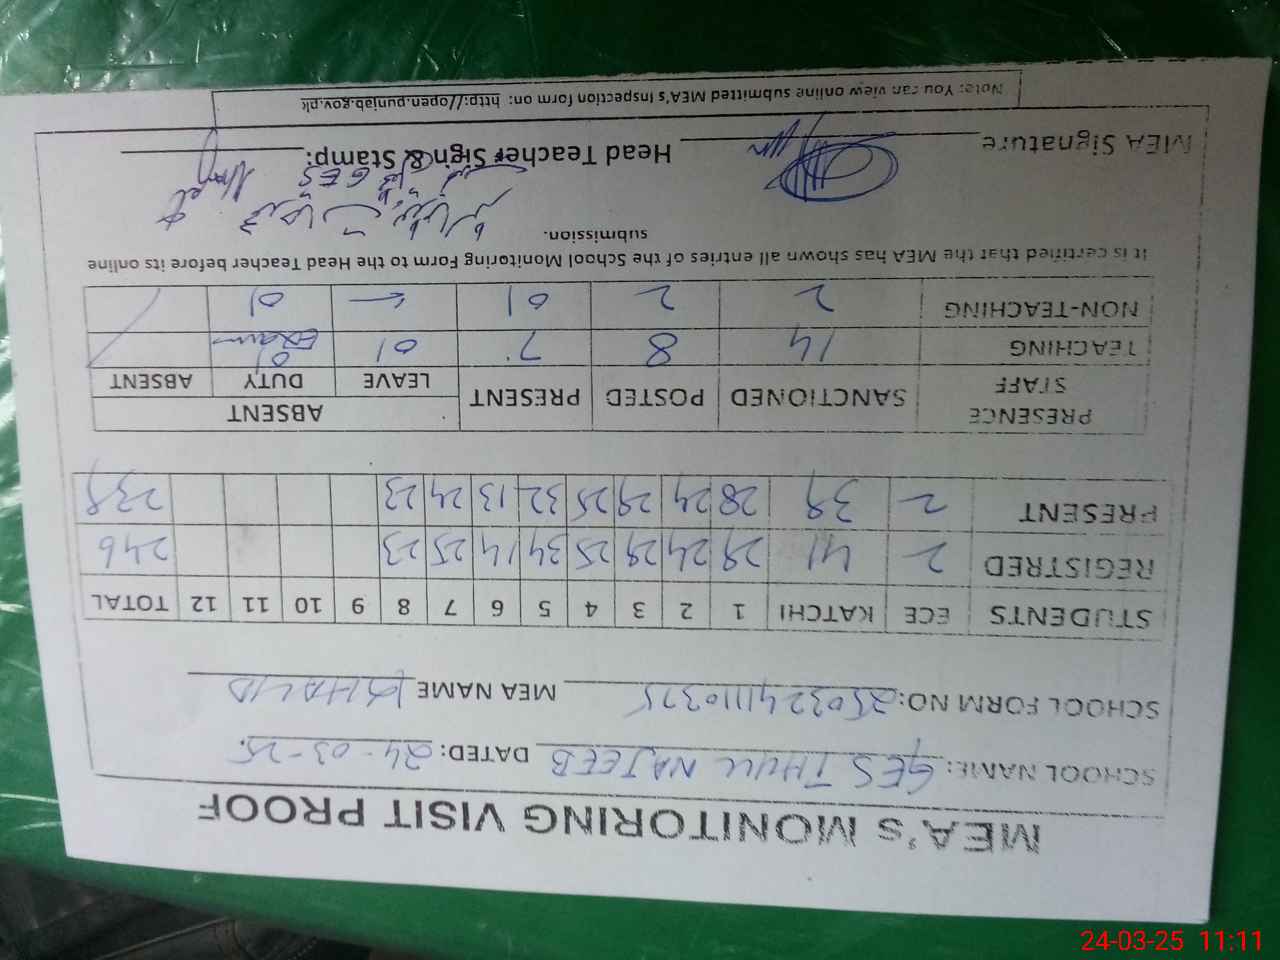 MEA's MONITORING VISIT PROOF
SCHOOL NAME: GES THULL NAJEEB DATED: 24-03-25
SCHOOL FORM NO: 2503241110325 MEA NAME KHALID
STUDENTS ECE KATCHI 1 2 3 4 5 6 7 8 9 10 11 12 TOTAL
REGISTRED 2 41 29 24 29 25 34 14 25 23 246
PRESENT 2 39 28 24 29 25 32 13 24 23 239
PRESENCE STAFF SANCTIONED POSTED PRESENT ABSENT
LEAVE DUTY ABSENT
TEACHING 14 8 7 01 01 Exam
NON-TEACHING 2 2 01 01
It is certified that the MEA has shown all entries of the School Monitoring Form to the Head Teacher before its online
submission.
MEA Signature Head Teacher Sign & Stamp:
GES
Note: You can view online submitted MEA's Inspection form on: http://open.punjab.gov.pk
24-03-25 11:11